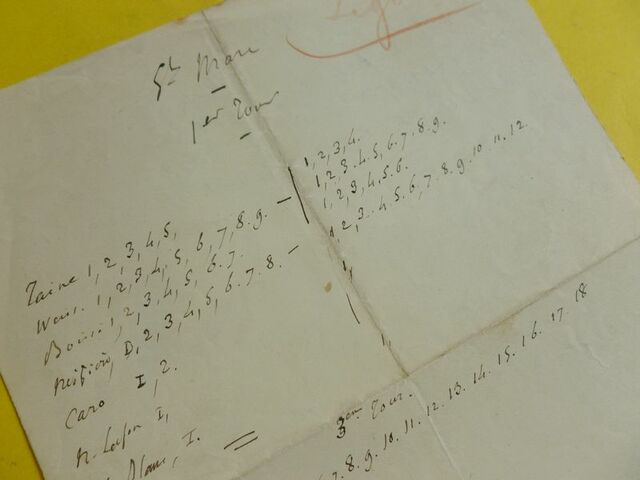 St Marc
1er Tour
Taine 1, 2, 3, 4, 5,
1, 2, 3, 4, 5, 6, 7, 8. 9. –
1, 2, 3, 4, 5, 6. 7.
2, 3, 4, 5, 6. 7. 8. –
Caro I, 2.
I,
I.
1, 2, 3, 4.
1, 2, 3. 4. 5, 6. 7. 8. 9.
1, 2, 3, 4, 5. 6.
1. 2, 3. 4. 5. 6, 7. 8. 9. 10. 11. 12.
1,
1,
3em Tour.
7. 8. 9. 10. 11. 12. 13. 14. 15. 16. 17. 18